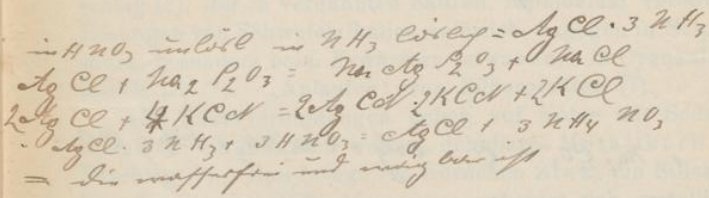 in HNO3 unlösl in NH3 löslich = AgCl · 3 NH3
AgCl + Na2 S2O3 = Na Ag S2O3 + NaCl
2AgCl + 4KCN = 2AgCN · 2KCN + 2KCl
AgCl · 3NH3 + 3HNO3 = AgCl + 3NH4 NO3
= die wasserfrei und ist